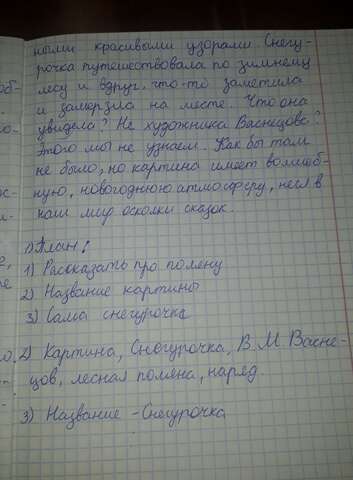 ными красивыми узорами. Снегу-
рочка путешествовала по зимнему
лесу и вдруг что-то заметила
и замерзла на месте. Что она
увидела? Не художника Васнецова?
Этого мы не узнаем. Как бы там
не было, но картина имеет волшеб-
ную, новогоднюю атмосферу, неся в
наш мир осколки сказок.
1) План:
1) Рассказать про поляну
2) Название картины
3) Сама снегурочка
2) Картина, Снегурочка, В. М. Васне-
цов, лесная поляна, наряд.
3) Название - Снегурочка